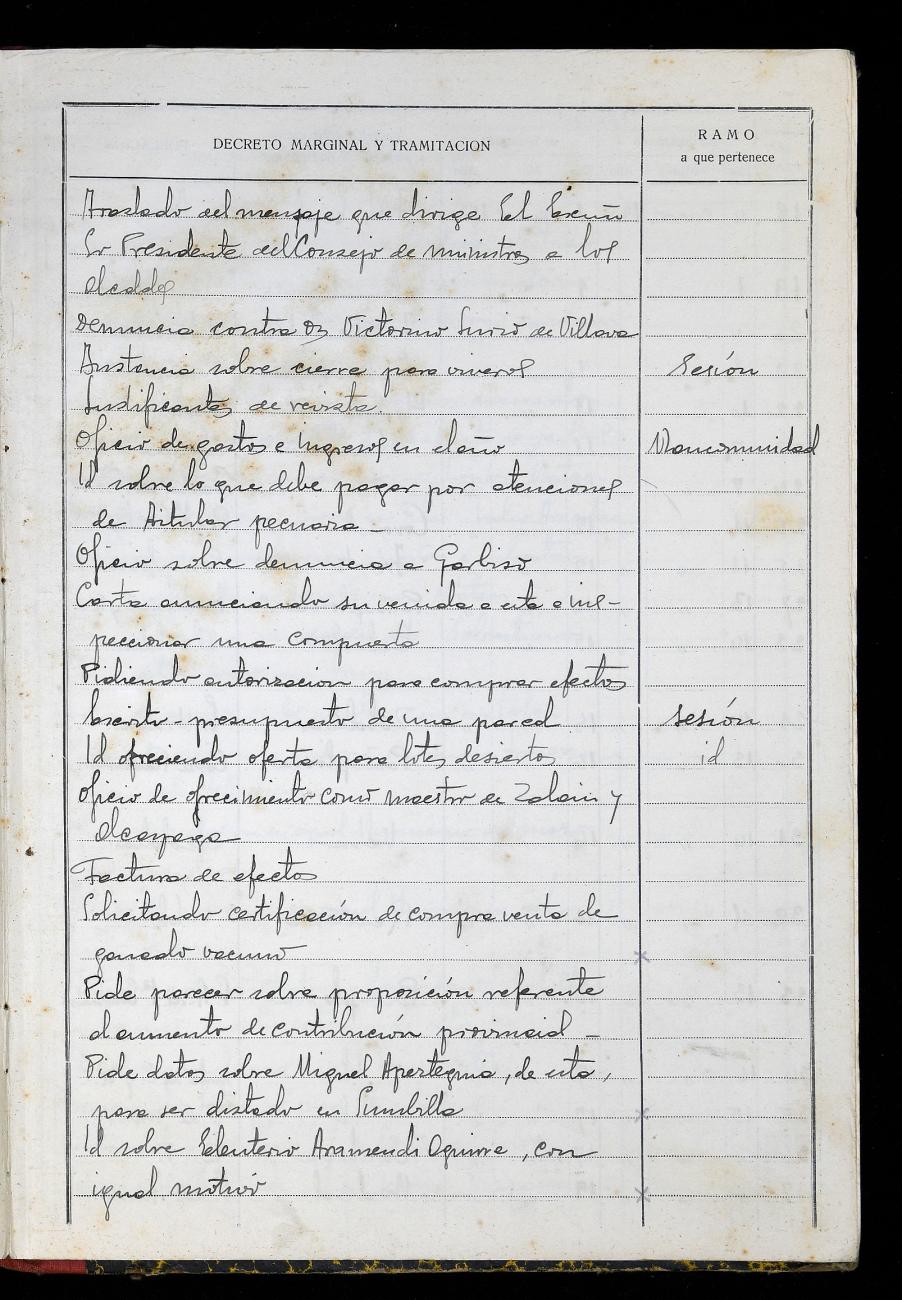 DECRETO MARGINAL Y TRAMITACION
RAMO
a que pertenece
Traslado del mensaje que dirige El Excmo
Sr Presidente del Consejo de ministros a los
Alcaldes
Denuncia contra Victorino de Villava
Instancia sobre cierre para viveros Sesión
Justificantes de revista.
Oficio de gastos e ingresos en el año Mancomunidad
Id sobre lo que debe pagar por atenciones
de Titular pecuaria _
Oficio sobre denuncia a Garbiso
Carta anunciando su venida a esta a ins-
peccionar una compuerta
Pidiendo autorizacion para comprar efectos
Escrito - presupuesto de una pared sesión
Id ofreciendo oferta para lotes desiertos id
Oficio de ofrecimiento como maestro de Zalain y
Alcayaga
Factura de efectos
Solicitando certificación de compra venta de
ganado vacuno x
Pide parecer sobre proposición referente
al aumento de contribución provincial _
Pide datos sobre Miguel Aperteguia, de esta,
para ser alistado en Sumbilla x
Id sobre Eleuterio Aramendi Aguirre, con
igual motivo x